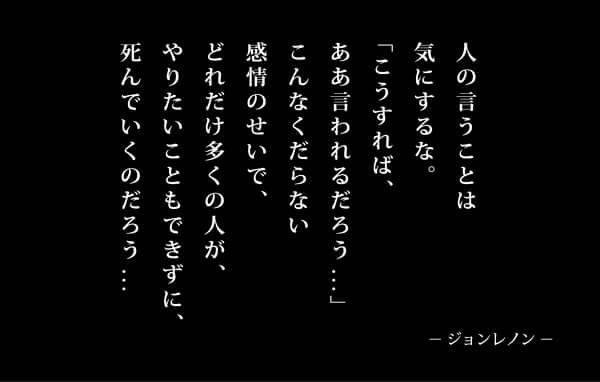 人の言うことは
気にするな。
「こうすれば、
ああ言われるだろう…」
こんなくだらない
感情のせいで、
どれだけ多くの人が、
やりたいこともできずに、
死んでいくのだろう…
－ジョンレノン－